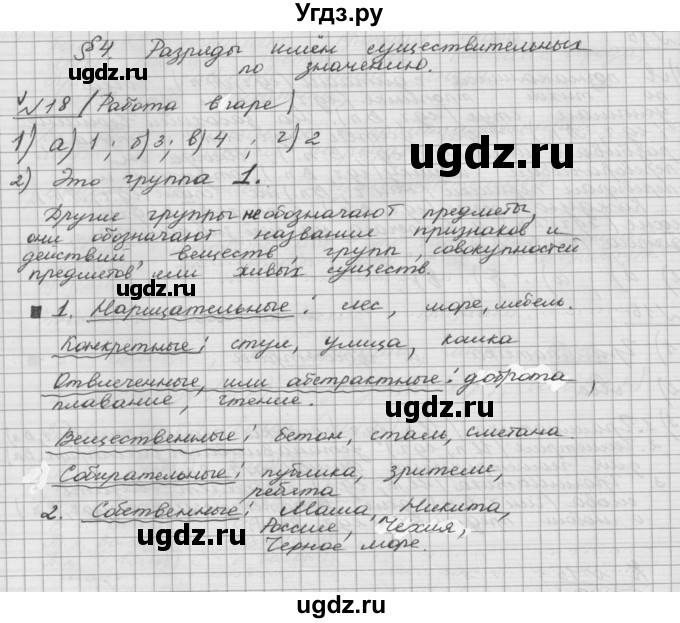 Угдз.ру
§4. Разряды имён существительных
ugdz.ru по значению. ugdz.ru
№18 (Работа в паре)
1) а) 1; б) 3; в) 4; г) 2
ugdz.ru
2) Это группа 1.
Другие группы не обозначают предметы,
они обозначают название признаков и
действий, веществ, групп, совокупностей
предметов или живых существ.
ugdz.ru
1. Нарицательные: лес, море, мебель.
Конкретные: стул, улица, кошка
Отвлеченные, или абстрактные: доброта,
плавание, чтение.
ugdz.ru
Вещественные: бетон, сталь, сметана.
Собирательные: публика, зрители,
ребята
2. Собственные: Маша, Никита,
ugdz.ru Россия, Чехия, ugdz.ru
Черное море.
ugdz.ru